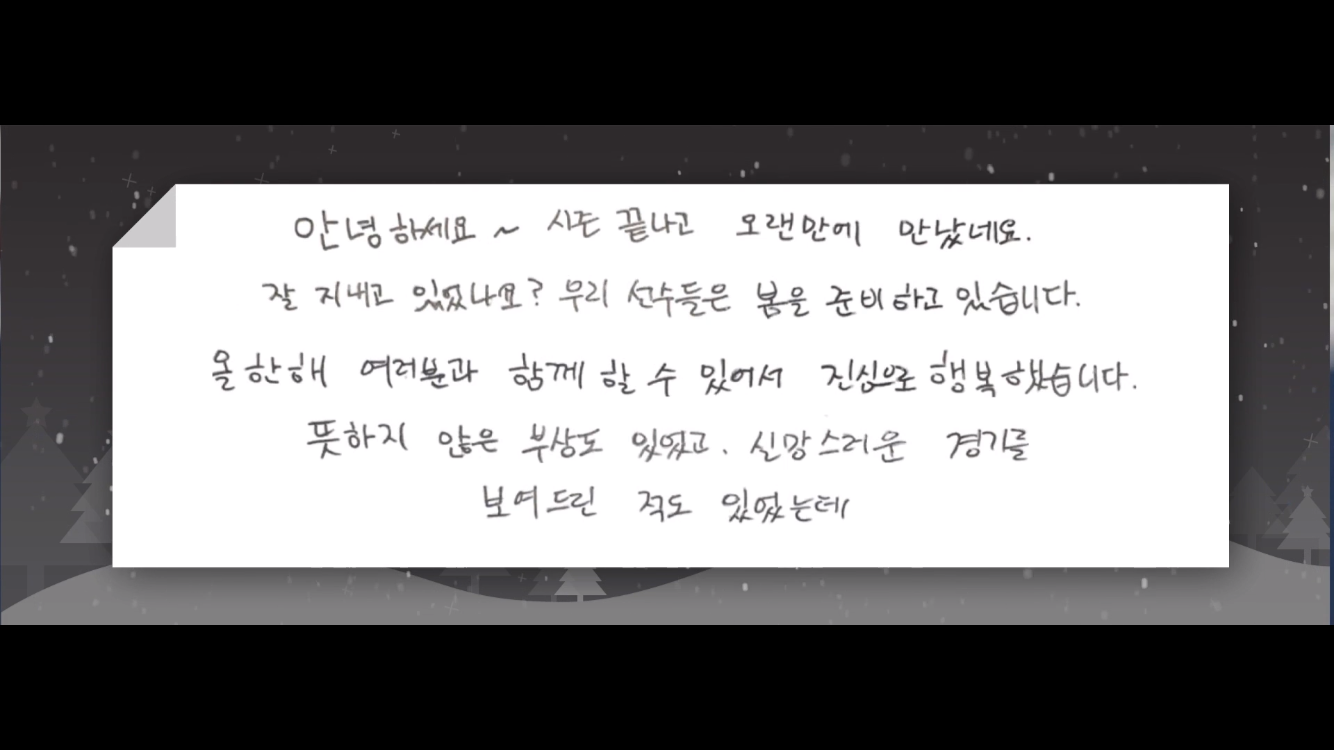 안녕하세요 ~ 시즌 끝나고 오랜만에 만났네요.
잘 지내고 있었나요? 우리 선수들은 봄을 준비하고 있습니다.
올 한해 여러분과 함께 할 수 있어서 진심으로 행복했습니다.
뜻하지 않은 부상도 있었고. 실망스러운 경기를
보여드린 적도 있었는데